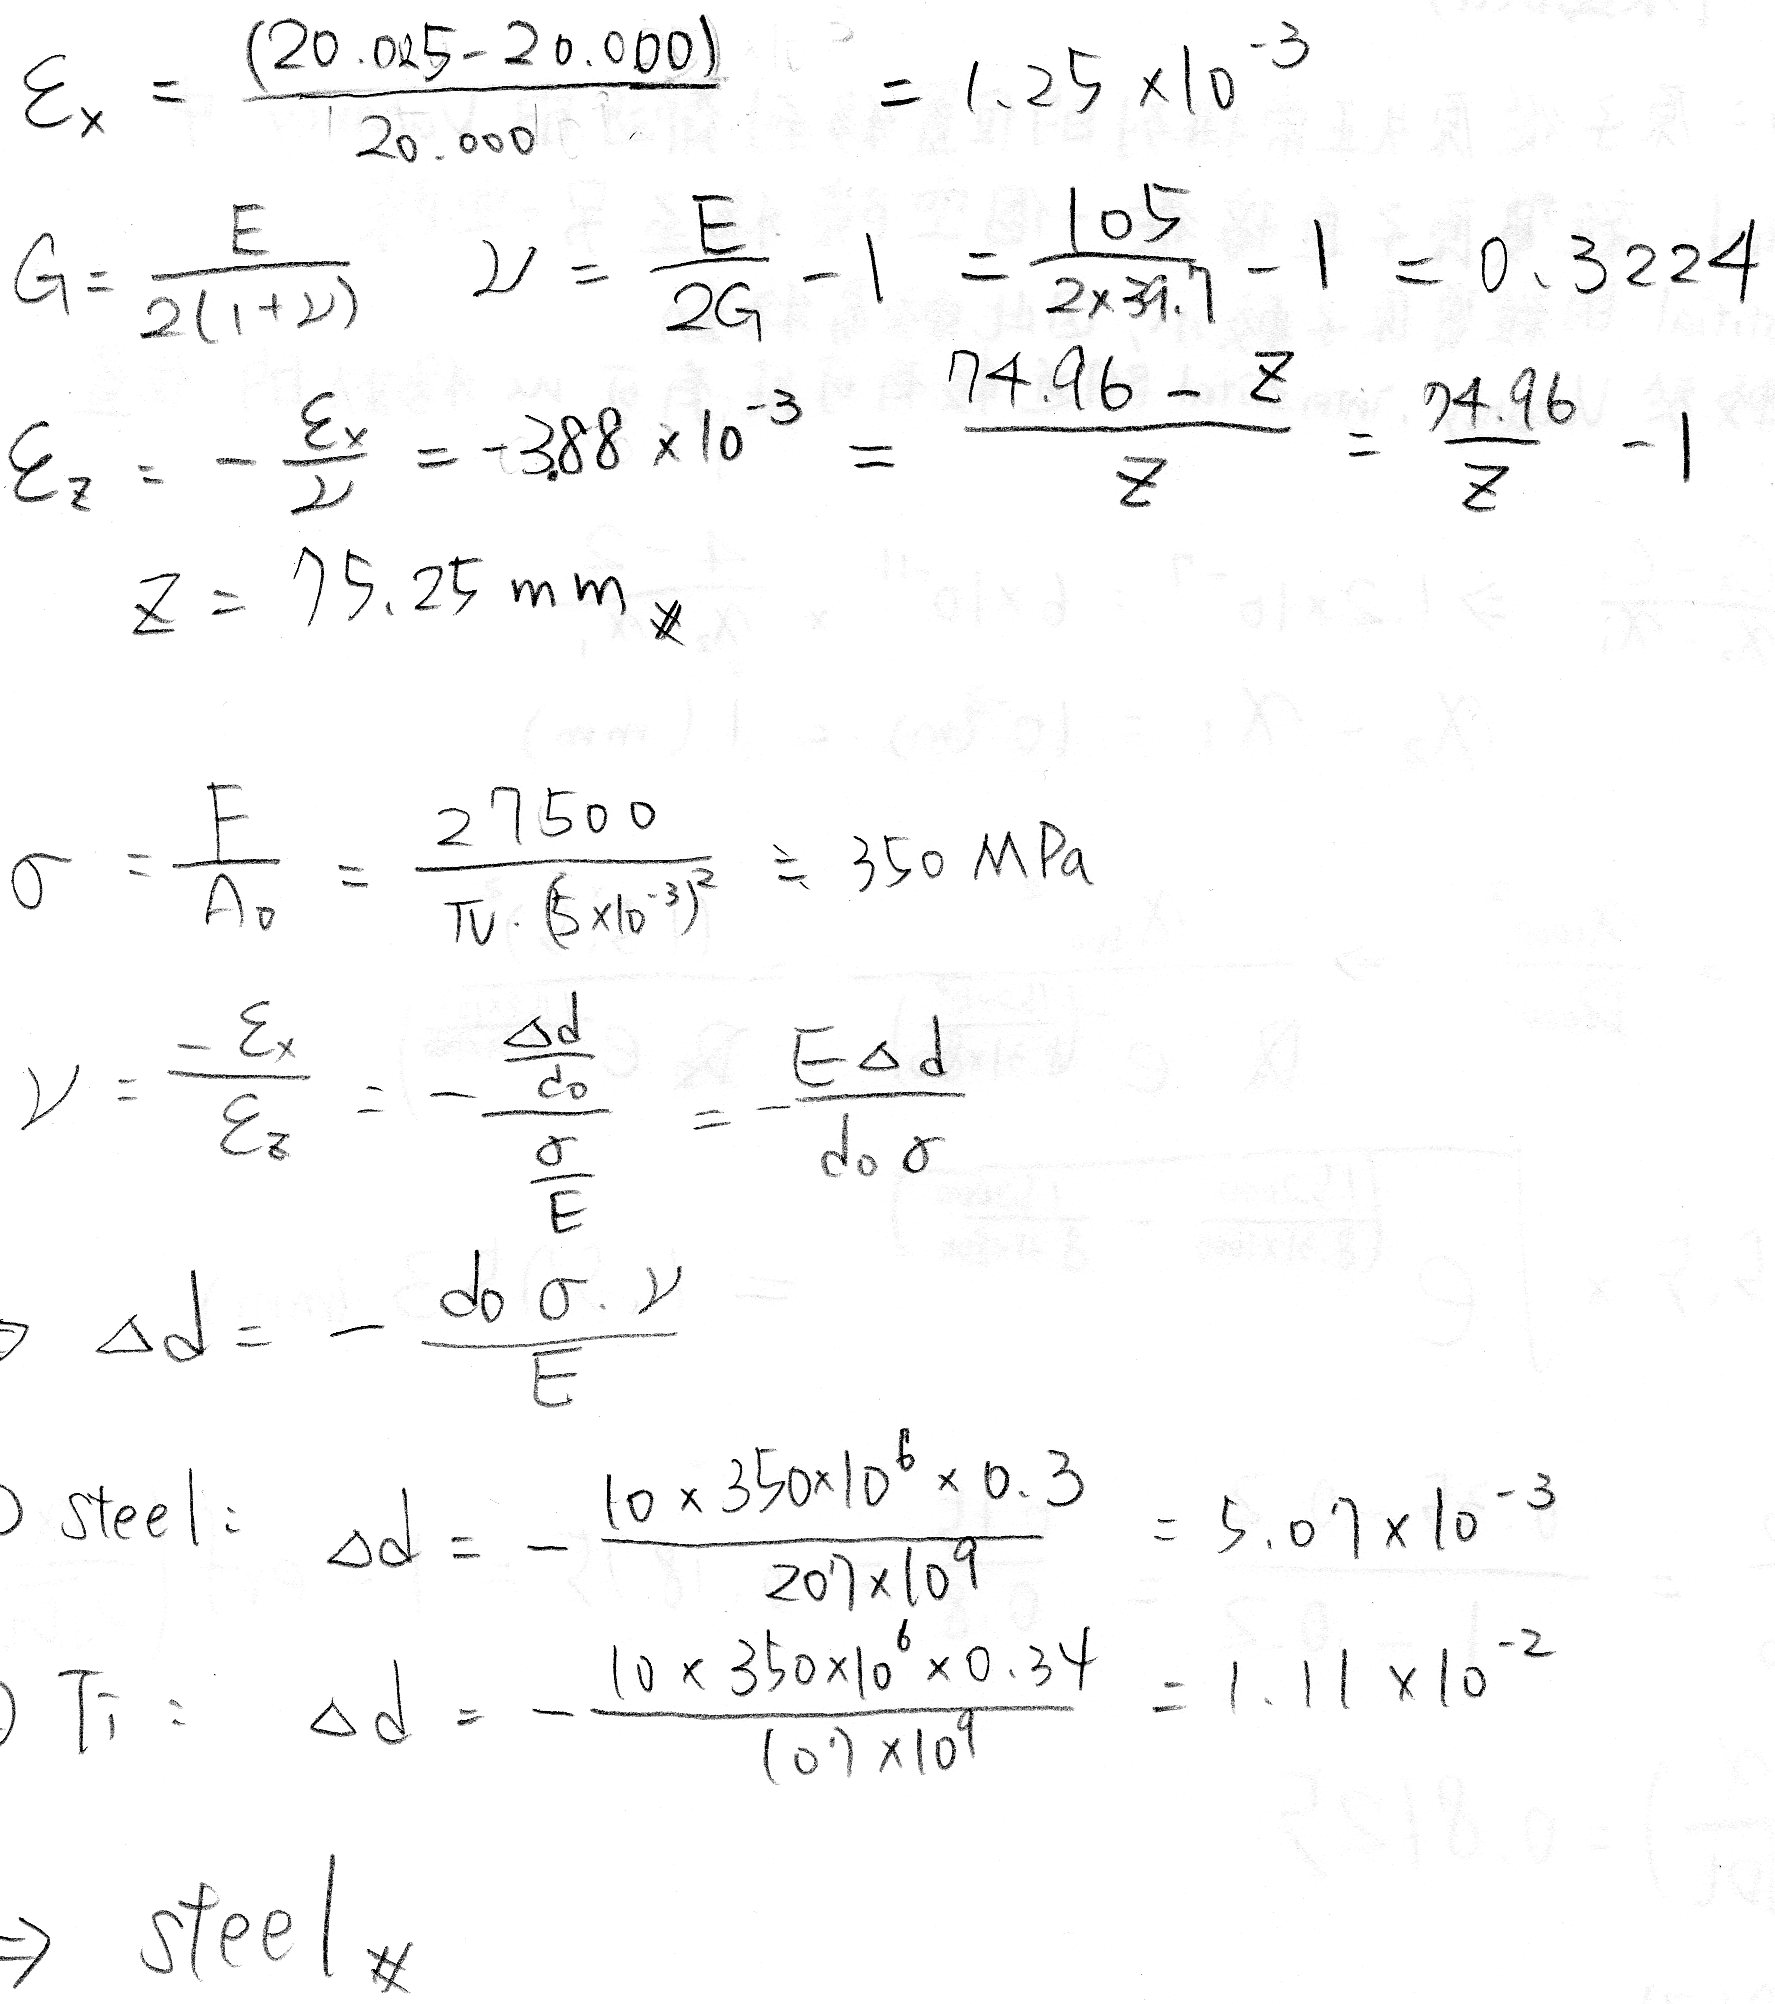 εx = (20.025-20.000) / 20.000 = 1.25 ×10^-3
G = E / 2(1+ν)   ν = E / 2G - 1 = 105 / 2×39.7 - 1 = 0.3224
εz = - εx / ν = -3.88 ×10^-3 = 74.96 - Z / Z = 74.96 / Z - 1
Z = 75.25 mm #
σ = F / A0 = 27500 / π · (5×10^-3)^2 ≒ 350 MPa
ν = -εx / εz = - (Δd / d0) / (σ / E) = - EΔd / d0 σ
⇒ Δd = - d0 σ · ν / E
steel : Δd = - 10 × 350×10^6 × 0.3 / 207×10^9 = 5.07 ×10^-3
Ti : Δd = - 10 × 350×10^6 × 0.34 / 107 ×10^9 = 1.11 ×10^-2
⇒ steel #